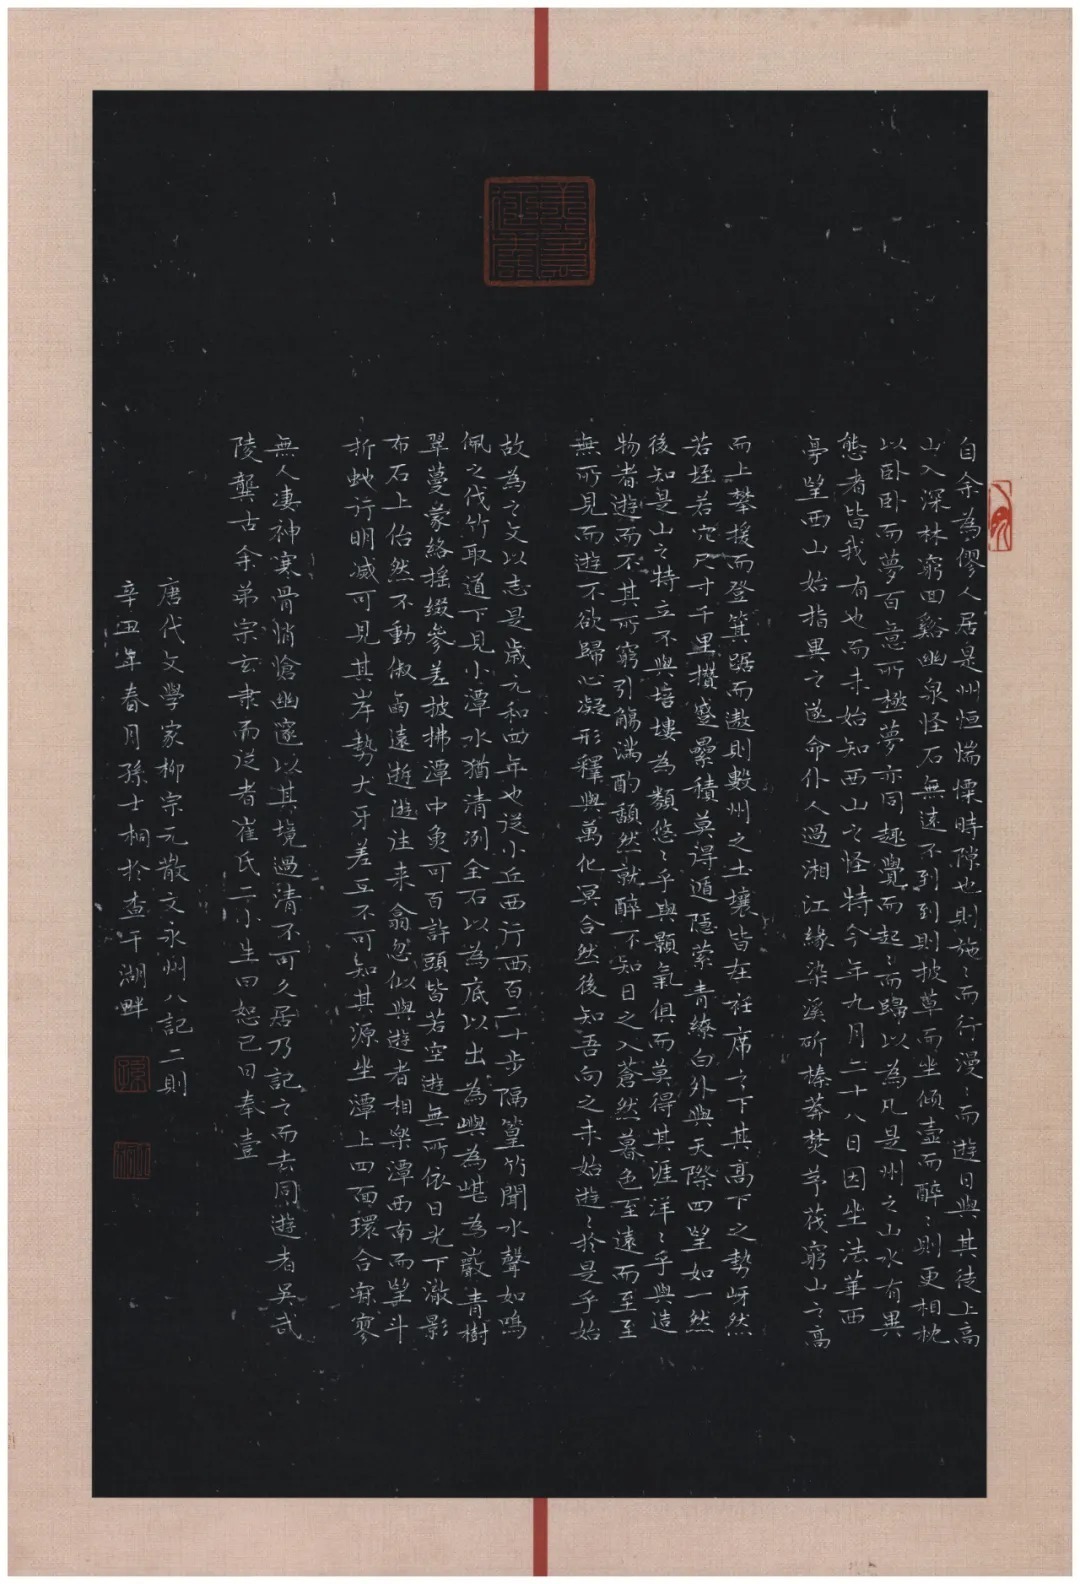 自余為僇人居是州恒惴慄時隙也則施〻而行漫〻而遊日與其徒上高
山入深林窮回谿幽泉怪石無遠不到到則披草而坐傾壺而醉〻則更相枕
以卧卧而夢百意所極夢亦同趣覺而起〻而歸以為凡是州之山水有異
態者皆我有也而未始知西山之怪特今年九月二十八日因坐法華西
亭望西山始指異之遂命仆人過湘江緣染溪斫榛莽焚茅茷窮山之高
而上攀援而登箕踞而遨則數州之土壤皆在衽席之下其高下之勢岈然
若垤若穴尺寸千里攢蹙纍積莫得遁隱縈青繚白外與天際四望如一然
後知是山之特立不與培塿為類悠〻乎與顥氣俱而莫得其涯洋〻乎與造
物者遊而不其所窮引觴滿酌頹然就醉不知日之入蒼然暮色至遠而至至
無所見而遊不欲歸心凝形釋與萬化冥合然後知吾向之未始遊〻於是乎始
故為之文以志是歲元和四年也從小丘西行西百二十步隔篁竹聞水聲如鳴
佩之伐竹取道下見小潭水猶清冽全石以為底以出為嶼為嵁為巖青樹
翠蔓蒙絡搖綴參差披拂潭中魚可百許頭皆若空遊無所依日光下澈影
布石上佁然不動俶爾遠逝遊往来翕忽似與遊者相樂潭西南而望斗
折蛇行明滅可見其岸勢犬牙差互不可知其源坐潭上四面環合寂寥
無人凄神寒骨悄愴幽邃以其境過清不可久居乃記之而去同遊者吳武
陵龔古余弟宗玄隶而從者崔氏二小生曰恕己曰奉壹
唐代文學家柳宗元散文永州八記二則
辛丑年春月孫士桐於查干湖畔